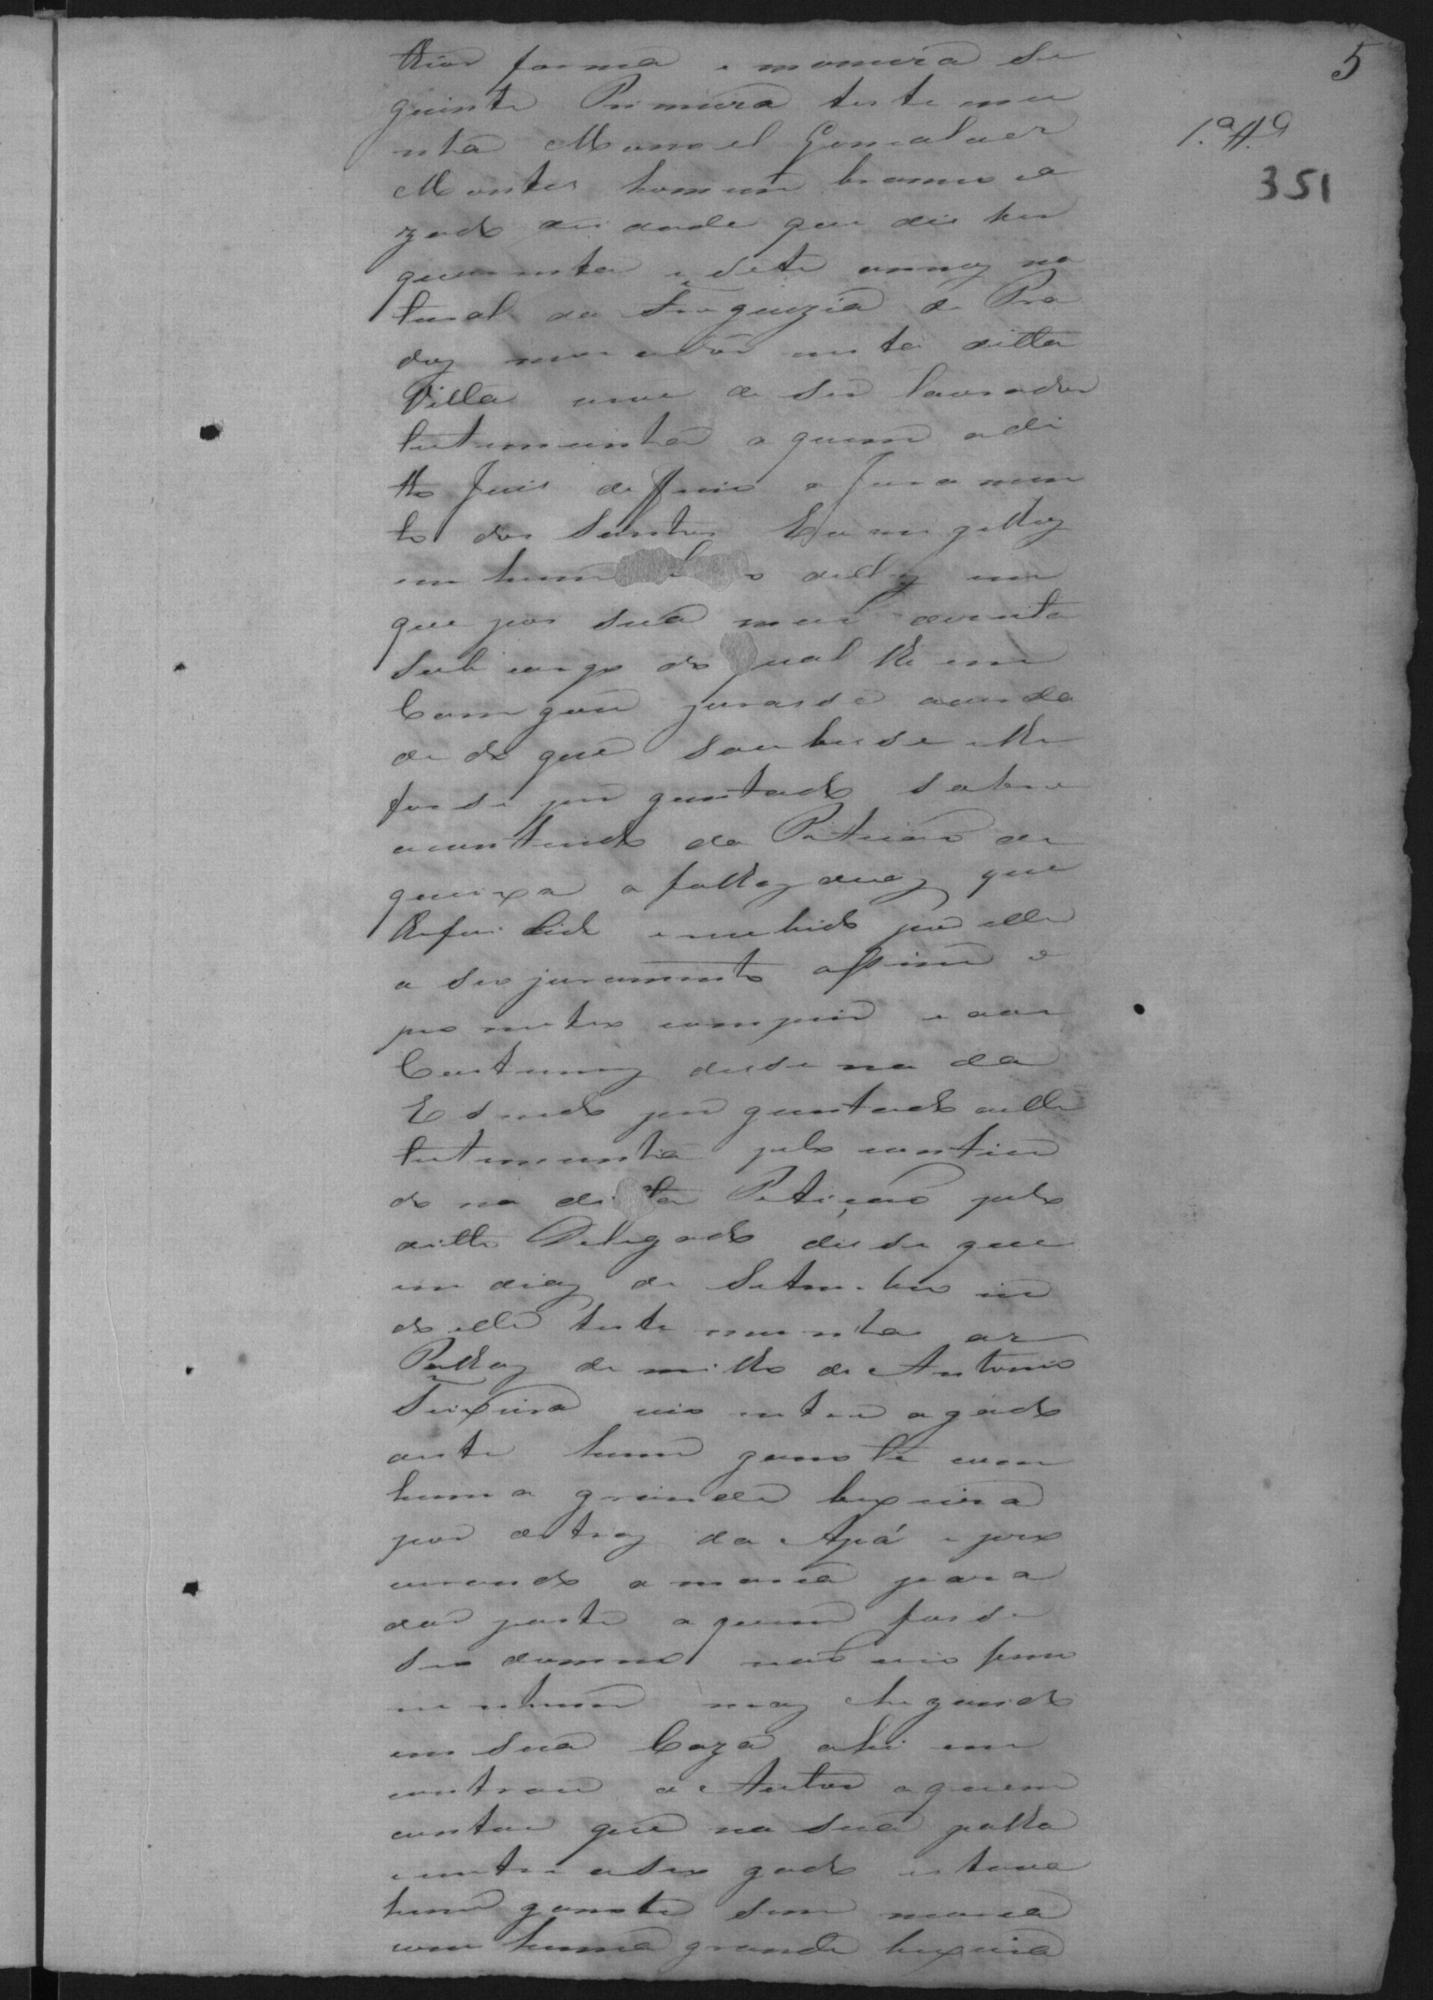 5
1.ª Tª
351
theor forma e maneira Se
guinte Primeira testemu
nha Manoel Gonsalves
Montes homem branco ca
zado de idade que dis ter
quarenta e Sete annos na
tural da Freguezia de Pra
dos morador nesta ditta
Villa vive de Ser lavrador
testemunha a quem o di
tto Juis deffirio o Juramen
to dos Santos Evangelhos
em hum delles em
que pos sua mão direita
Sob cargo do qual lhe em
Carregou jurasse averda
de do que Soubesse e lhe
fosse perguntado Sobre
o contiudo da Petição de
queixa a folhas duas que
lida e recebido por elle
o seo juramento assim o
prometeo comprir e aos
Costumes disse nada
E Sendo perguntado a elle
testemunha pelo contiu
do na ditta Petição pelo
ditto Delegado disse que
em dias de Setembro in
do elle testemunha as
Palhas de milho de Antonio
Teixeira vio entre o gado
deste hum garrote com
huma grande bixeira
por detras da Apá e pro
curando a marca para
dar parte a quem fosse
Seo dono não vio ferro
nenhum mas chegando
em Sua Caza ahi en
controu o Autor a quem
contou que na Sua palha
entre o Seo gado estava
hum garrote Sem marca
com huma grande bixeira